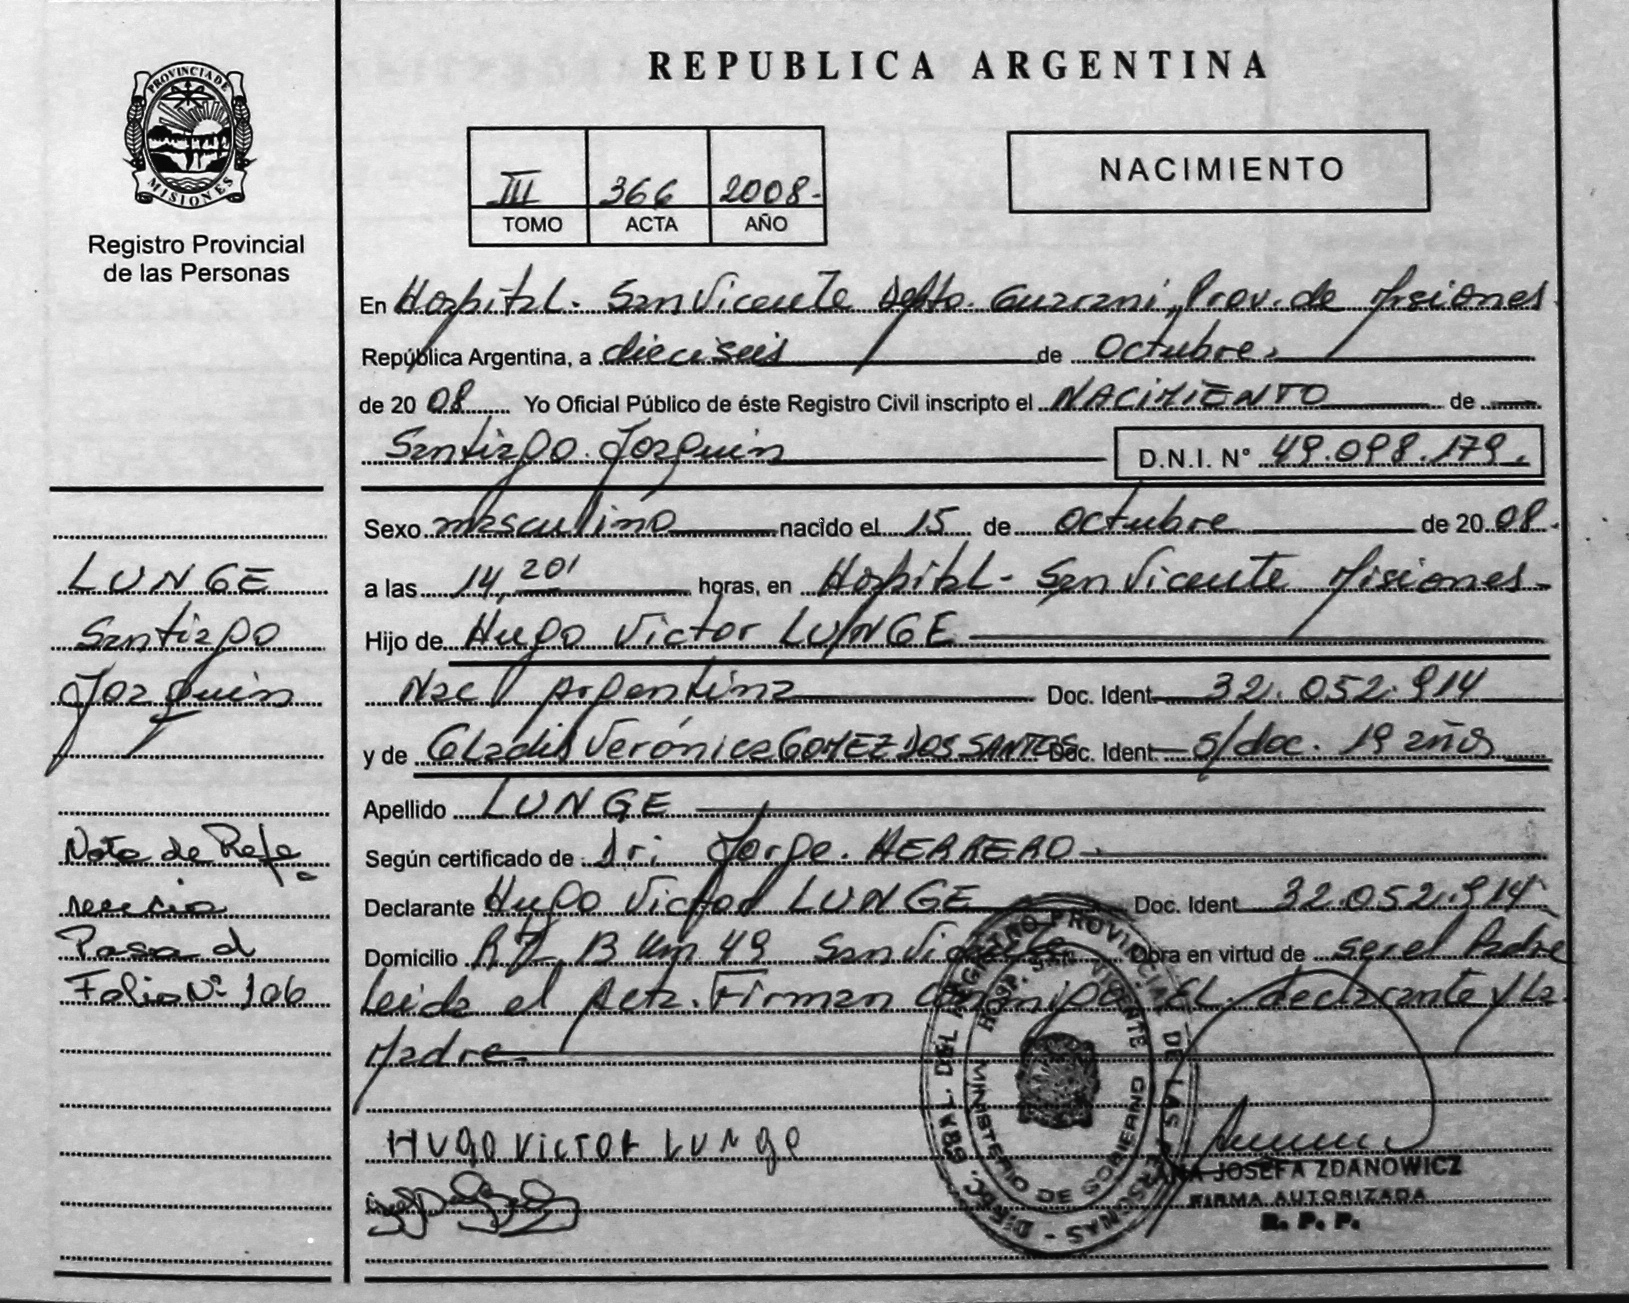 REPUBLICA ARGENTINA
PROVINCIA DE
MISIONES
Registro Provincial
de las Personas
III 366 2008-
TOMO ACTA AÑO
NACIMIENTO
En Hospital. San Vicente Depto. Guarani, Prov. de Misiones
República Argentina, a dieciseis de Octubre
de 20 08 Yo Oficial Público de éste Registro Civil inscripto el NACIMIENTO de
Santiago Joaquin D.N.I. N° 49.098.179.
Sexo masculino nacido el 15 de octubre de 20 08.
a las 14,20' horas, en Hospital - San Vicente Misiones
Hijo de Hugo Victor LUNGE
Nac Argentina Doc. Ident. 32.052.914
y de Gladis Verónica GOMEZ DOS SANTOS Doc. Ident. s/doc. 19 años
Apellido LUNGE
Según certificado de Dr. Jorge. HERRERO
Declarante Hugo Victor LUNGE Doc. Ident. 32.052.914
Domicilio 13 Km 49 San Vicente Obra en virtud de ser el Padre
Leida el Acta. Firman conmigo EL declarante y La
Madre.
LUNGE
Santiago
Joaquin
Nota de Refe
rencia
Pasa al
Folio N° 106
HUGO VICTOR LUNGE
DIREC. GRAL. DEL REGISTRO PROVINCIAL DE LAS PERSONAS
HOSP. SAN VICENTE
MINISTERIO DE GOBIERNO
ANA JOSEFA ZDANOWICZ
FIRMA AUTORIZADA
R. P. P.